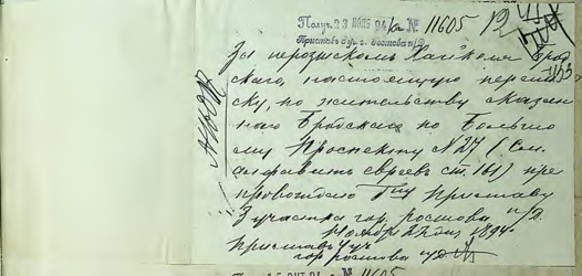 Получ. 23 НОЯБ 94 № 11605 12
Приставъ 3 уч. г. Ростова н/Д.
За нерозыскомъ Хаи́кома Брод
скаго, настоящую перепи
ску, по жительству сказан
наго Бродскаго по Большо
му Проспекту № 27 (См.
алфавитъ евреевъ ст. 161) пре
провождаю Гну Приставу
3 участка гор. Ростова н/Д.
Ноября 22 дня 1894 г.
Приставъ 4 уч
гор Ростова н/Д
№ 11605